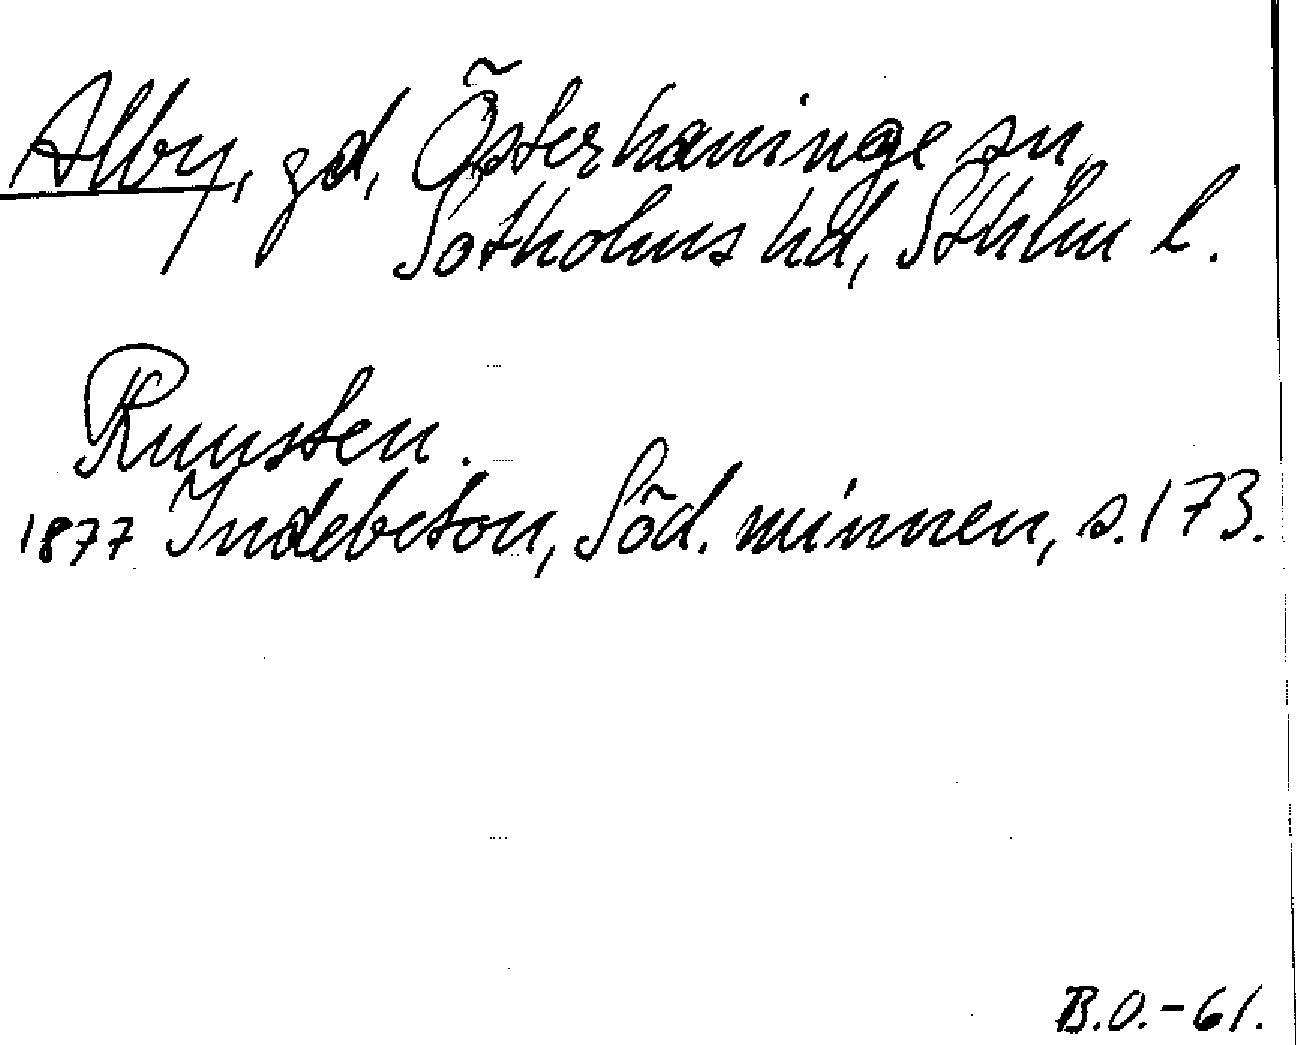 Alby, gd, Österhaninge sn,
Sotholms hd, Sthlm l.
Runsten.
1877 Indebetou, Söd. minnen, s. 173.
B.O.-61.